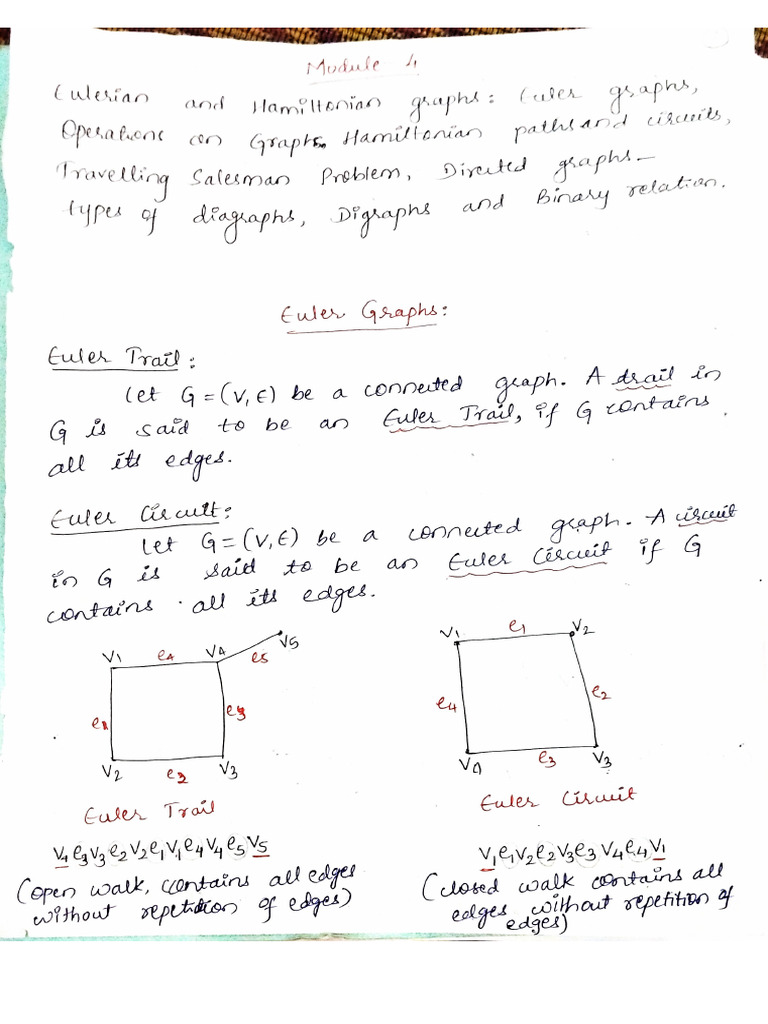 Module 4
Eulerian and Hamiltonian graphs: Euler graphs,
Operations on Graphs, Hamiltonian paths and circuits,
Travelling Salesman Problem, Directed graphs –
types of diagraphs, Digraphs and Binary relation.
Euler Graphs:
Euler Trail:
Let G = (V, E) be a connected graph. A trail in
G is said to be an Euler Trail, if G contains
all its edges.
Euler Circuit:
Let G = (V, E) be a connected graph. A circuit
in G is said to be an Euler Circuit if G
contains all its edges.
V1 e4 V4 e5 V5
e1 e3
V2 e2 V3
Euler Trail
V4e3V3e2V2e1V1e4V4e5V5
(open walk, contains all edges
without repetition of edges)
V1 e1 V2
e4 e2
V4 e3 V3
Euler Circuit
V1e1V2e2V3e3V4e4V1
(closed walk contains all
edges without repetition of
edges)